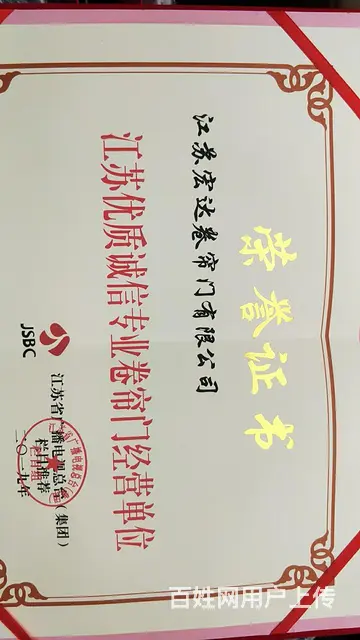 荣誉证书
江苏宏达卷帘门有限公司
江苏优质诚信专业卷帘门经营单位
JSBC
江苏省广播电视总台(集团)
栏目推荐
二〇一九年
百姓网用户上传